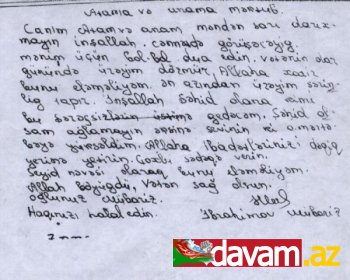 Atama və anama məktub.
Canım Atam və anam məndən sarı darıx-
mayın inşallah. cənnətdə görüşəcəyig.
mənim üçün bol-bol dua edin. vətənin dar
günündə ürəyim dözmür. Allaha xatir
bunu eləməliyəm. ən azından ürəyim sərin-
lig tapır. İnşallah Şəhid olana kimi
bu şərəfsizlərin üstünə gedəcəm. Şəhid ol-
sam ağlamayın əksinə sevinin ki o mərtə-
bəyə yüksəldim. Allaha ibadətlərinizi dəqiq
yerinə yetirin. Çoxlu sədəqə verin.
Seyid nəvəsi olaraq bunu eləməliyəm.
Allah böyügdü, Vətən sağ olsun.
oğlunuz Mübariz.
Haqqınızı halal edin. İbrahimov Mübariz
davam.az